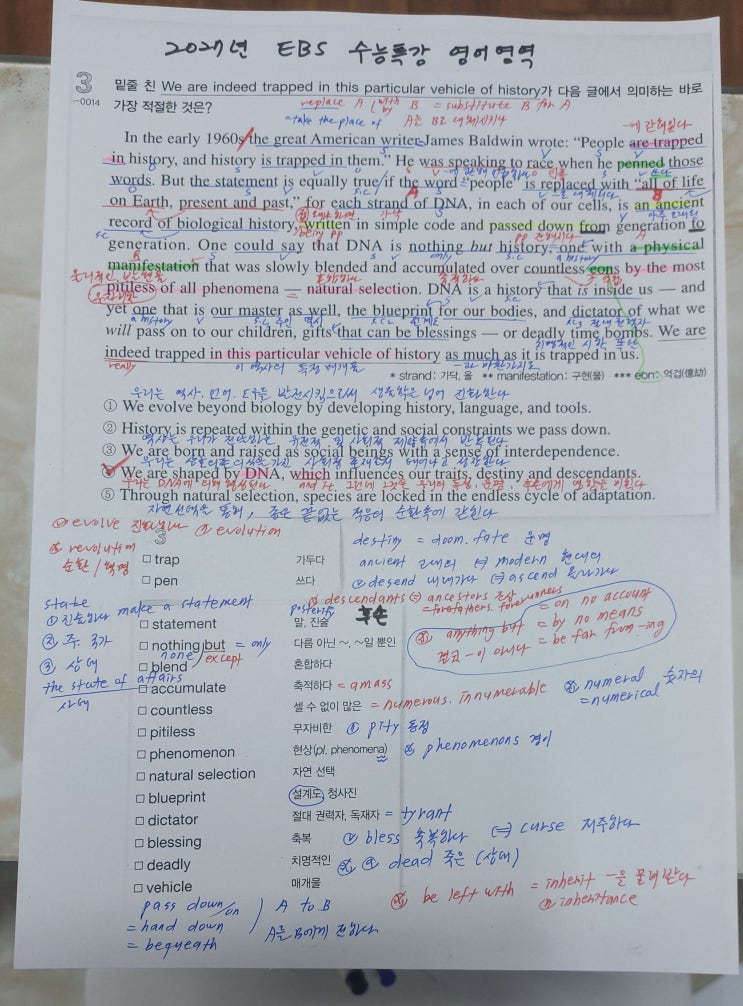 2027년 EBS 수능특강 영어영역
3
~0014
밑줄 친 We are indeed trapped in this particular vehicle of history가 다음 글에서 의미하는 바로
가장 적절한 것은?
replace A (with/by B = substitute B for A
= take the place of A를 B로 대체시키다
-에 갇혀있다
In the early 1960s, the great American writer James Baldwin wrote: “People are trapped
in history, and history is trapped in them.” He was speaking to race when he penned those
words. But the statement is equally true if the word “people” is replaced with “all of life
on Earth, present and past,” for each strand of DNA, in each of our cells, is an ancient
record of biological history, written in simple code and passed down from generation to
generation. One could say that DNA is nothing but history, one with a physical
manifestation that was slowly blended and accumulated over countless eons by the most
pitiless of all phenomena — natural selection. DNA is a history that is inside us — and
yet one that is our master as well, the blueprint for our bodies, and dictator of what we
will pass on to our children, gifts that can be blessings — or deadly time bombs. We are
indeed trapped in this particular vehicle of history as much as it is trapped in us.
really 이 역사의 특정 매개물 -과 마찬가지로
* strand: 가닥, 올 ** manifestation: 구현(물) *** eon: 억겁(億劫)
우리는 역사, 언어, 도구를 발전시킴으로써 생물학을 넘어 진화한다
① We evolve beyond biology by developing history, language, and tools.
② History is repeated within the genetic and social constraints we pass down.
역사는 우리가 전달하는 유전적 및 사회적 제약속에서 반복된다
③ We are born and raised as social beings with a sense of interdependence.
우리는 상호의존의식을 가진 사회적 존재로서 태어나고 성장한다
④ We are shaped by DNA, which influences our traits, destiny and descendants.
우리는 DNA에 의해 형성된다 and 그것은 우리의 특성, 운명, 후손에게 영향을 미친다
⑤ Through natural selection, species are locked in the endless cycle of adaptation.
자연선택을 통해, 종은 끝없는 적응의 순환속에 갇힌다
ⓥ evolve 진화하다 ⓝ evolution
revolution
순환/혁명
3
destiny = doom. fate 운명
□ trap 가두다
ancient 고대의 ⇔ modern 현대의
□ pen 쓰다
ⓥ desend 내려가다 ⇔ ascend 올라가다
ⓝ descendants ⇔ ancestors 조상
= forefathers. forerunners
posterity 후손
state
① 진술하다 make a statement
② 주. 국가
③ 상태
the state of affairs
사태
□ statement 말, 진술
□ nothing but 다름 아닌 ~, ~일 뿐인
= only
none except
anything but = on no account
= by no means
결코 -이 아니다 = be far from -ing
□ blend 혼합하다
□ accumulate 축적하다 = amass
□ countless 셀 수 없이 많은 = numerous. innumerable
numeral 숫자의
= numerical
□ pitiless 무자비한 ⓝ pity 동정
□ phenomenon 현상(pl. phenomena) phenomenons 경이
□ natural selection 자연 선택
□ blueprint 설계도, 청사진
□ dictator 절대 권력자, 독재자 = tyrant
□ blessing 축복 ⓥ bless 축복하다 ⇔ curse 저주하다
□ deadly 치명적인 ⓐ dead 죽은 (상태)
□ vehicle 매개물
be left with = inherit -을 물려받다
ⓝ inheritance
pass down/on ) A to B
= hand down
= bequeath
A를 B에게 전하다